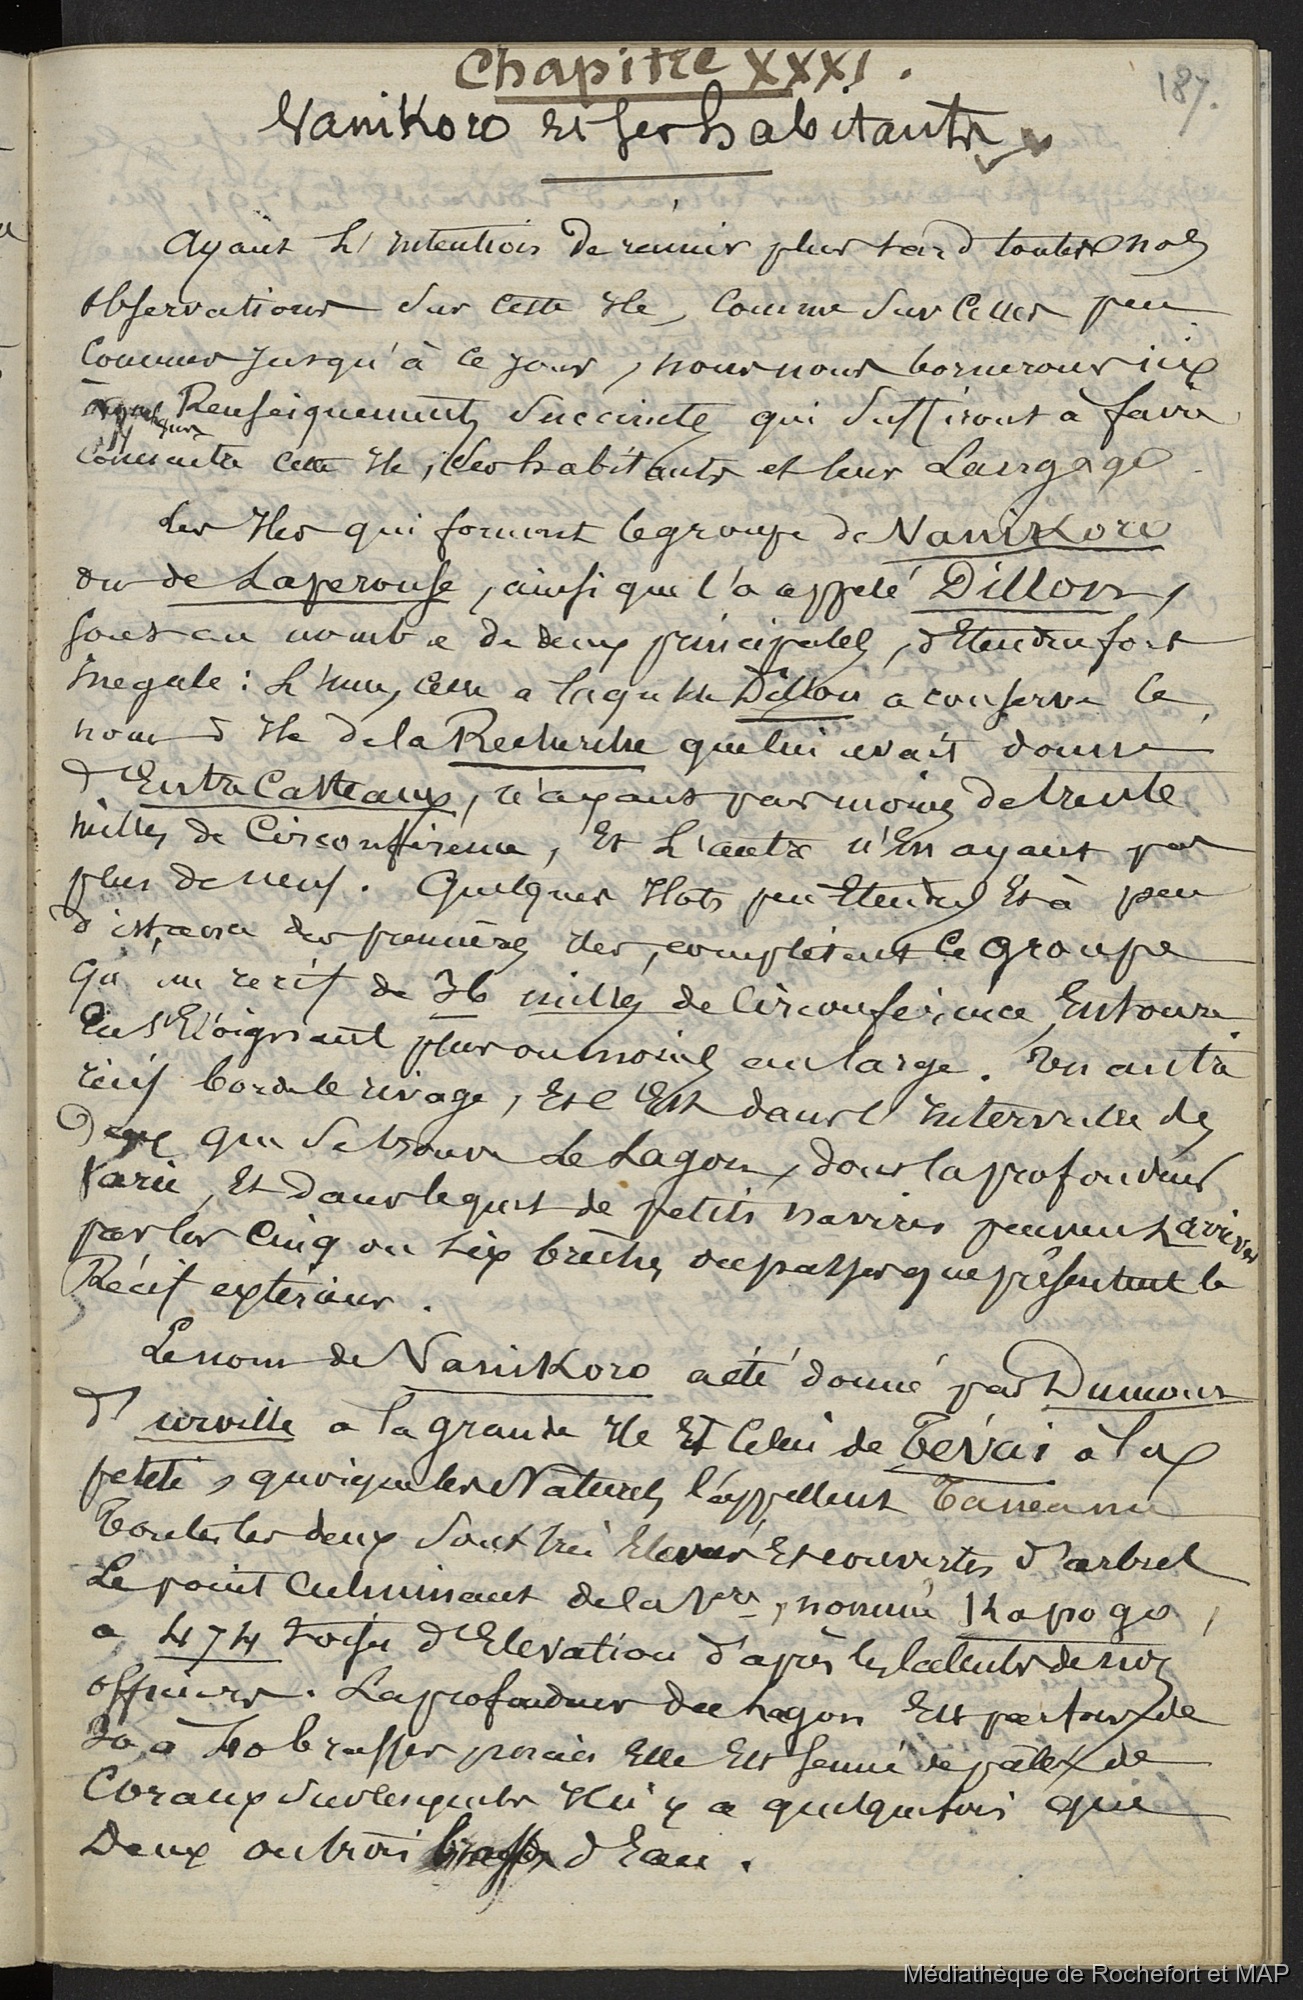 Chapitre XXXI.
187.
Vanikoro et ses habitants
Ayant L'intention de reunir plus tard toutes nos
observations sur cette Ile, comme sur celles peu
connues jusqu'à ce jour, nous nous bornerons ici
à quelques Renseignements succincts qui suffiront à faire
connaitre cette Ile, ses habitants et leur Langage.
Les Iles qui forment le groupe de Vanikoro
ou de Laperouse, ainsi que l'a appelé Dillon,
sont au nombre de deux principales, d'Etendue fort
Inégale: L'une, celle a laquelle Dillon a conservé le
nom d'Ile de la Recherche que lui avait donné
d'EntreCasteaux, n'ayant pas moins de trente
milles de Circonférence, Et L'autre n'En ayant pas
plus de neuf. Quelques Ilots peu Etendus Et à peu
distance des premières Iles, complètent le groupe
qu'un recif de 36 milles de Circonférence, Entoure
En s'Eloignant plus ou moins au large. Un autre
récif borde le rivage, Et c'Est dans l'Intervalle des
Deux que se trouve Le Lagon, dont la profondeur
Varie, Et dans lequel de petits navires peuvent arriver
par les Cinq ou six brèches ou passes que présentent le
Récif extérieur.
Le nom de Vanikoro a été donné par Dumont
d'urville a la grande Ile Et Celui de Tévai à la
petite, quoique les Naturels l'appellent Taneanu
Toutes les deux sont très Elevées Et couvertes d'arbres
Le point Culminant de la 1ère, nommé Kapogo,
a 474 toises d'Elevation d'après les calculs de nos
officiers. La profondeur du Lagon Est partout de
30 à 40 brasses, mais Elle Est semé de patés de
Coraux sur lesquels Il n'y a quelquefois que
Deux ou trois brasses d'Eau.
Médiathèque de Rochefort et MAP